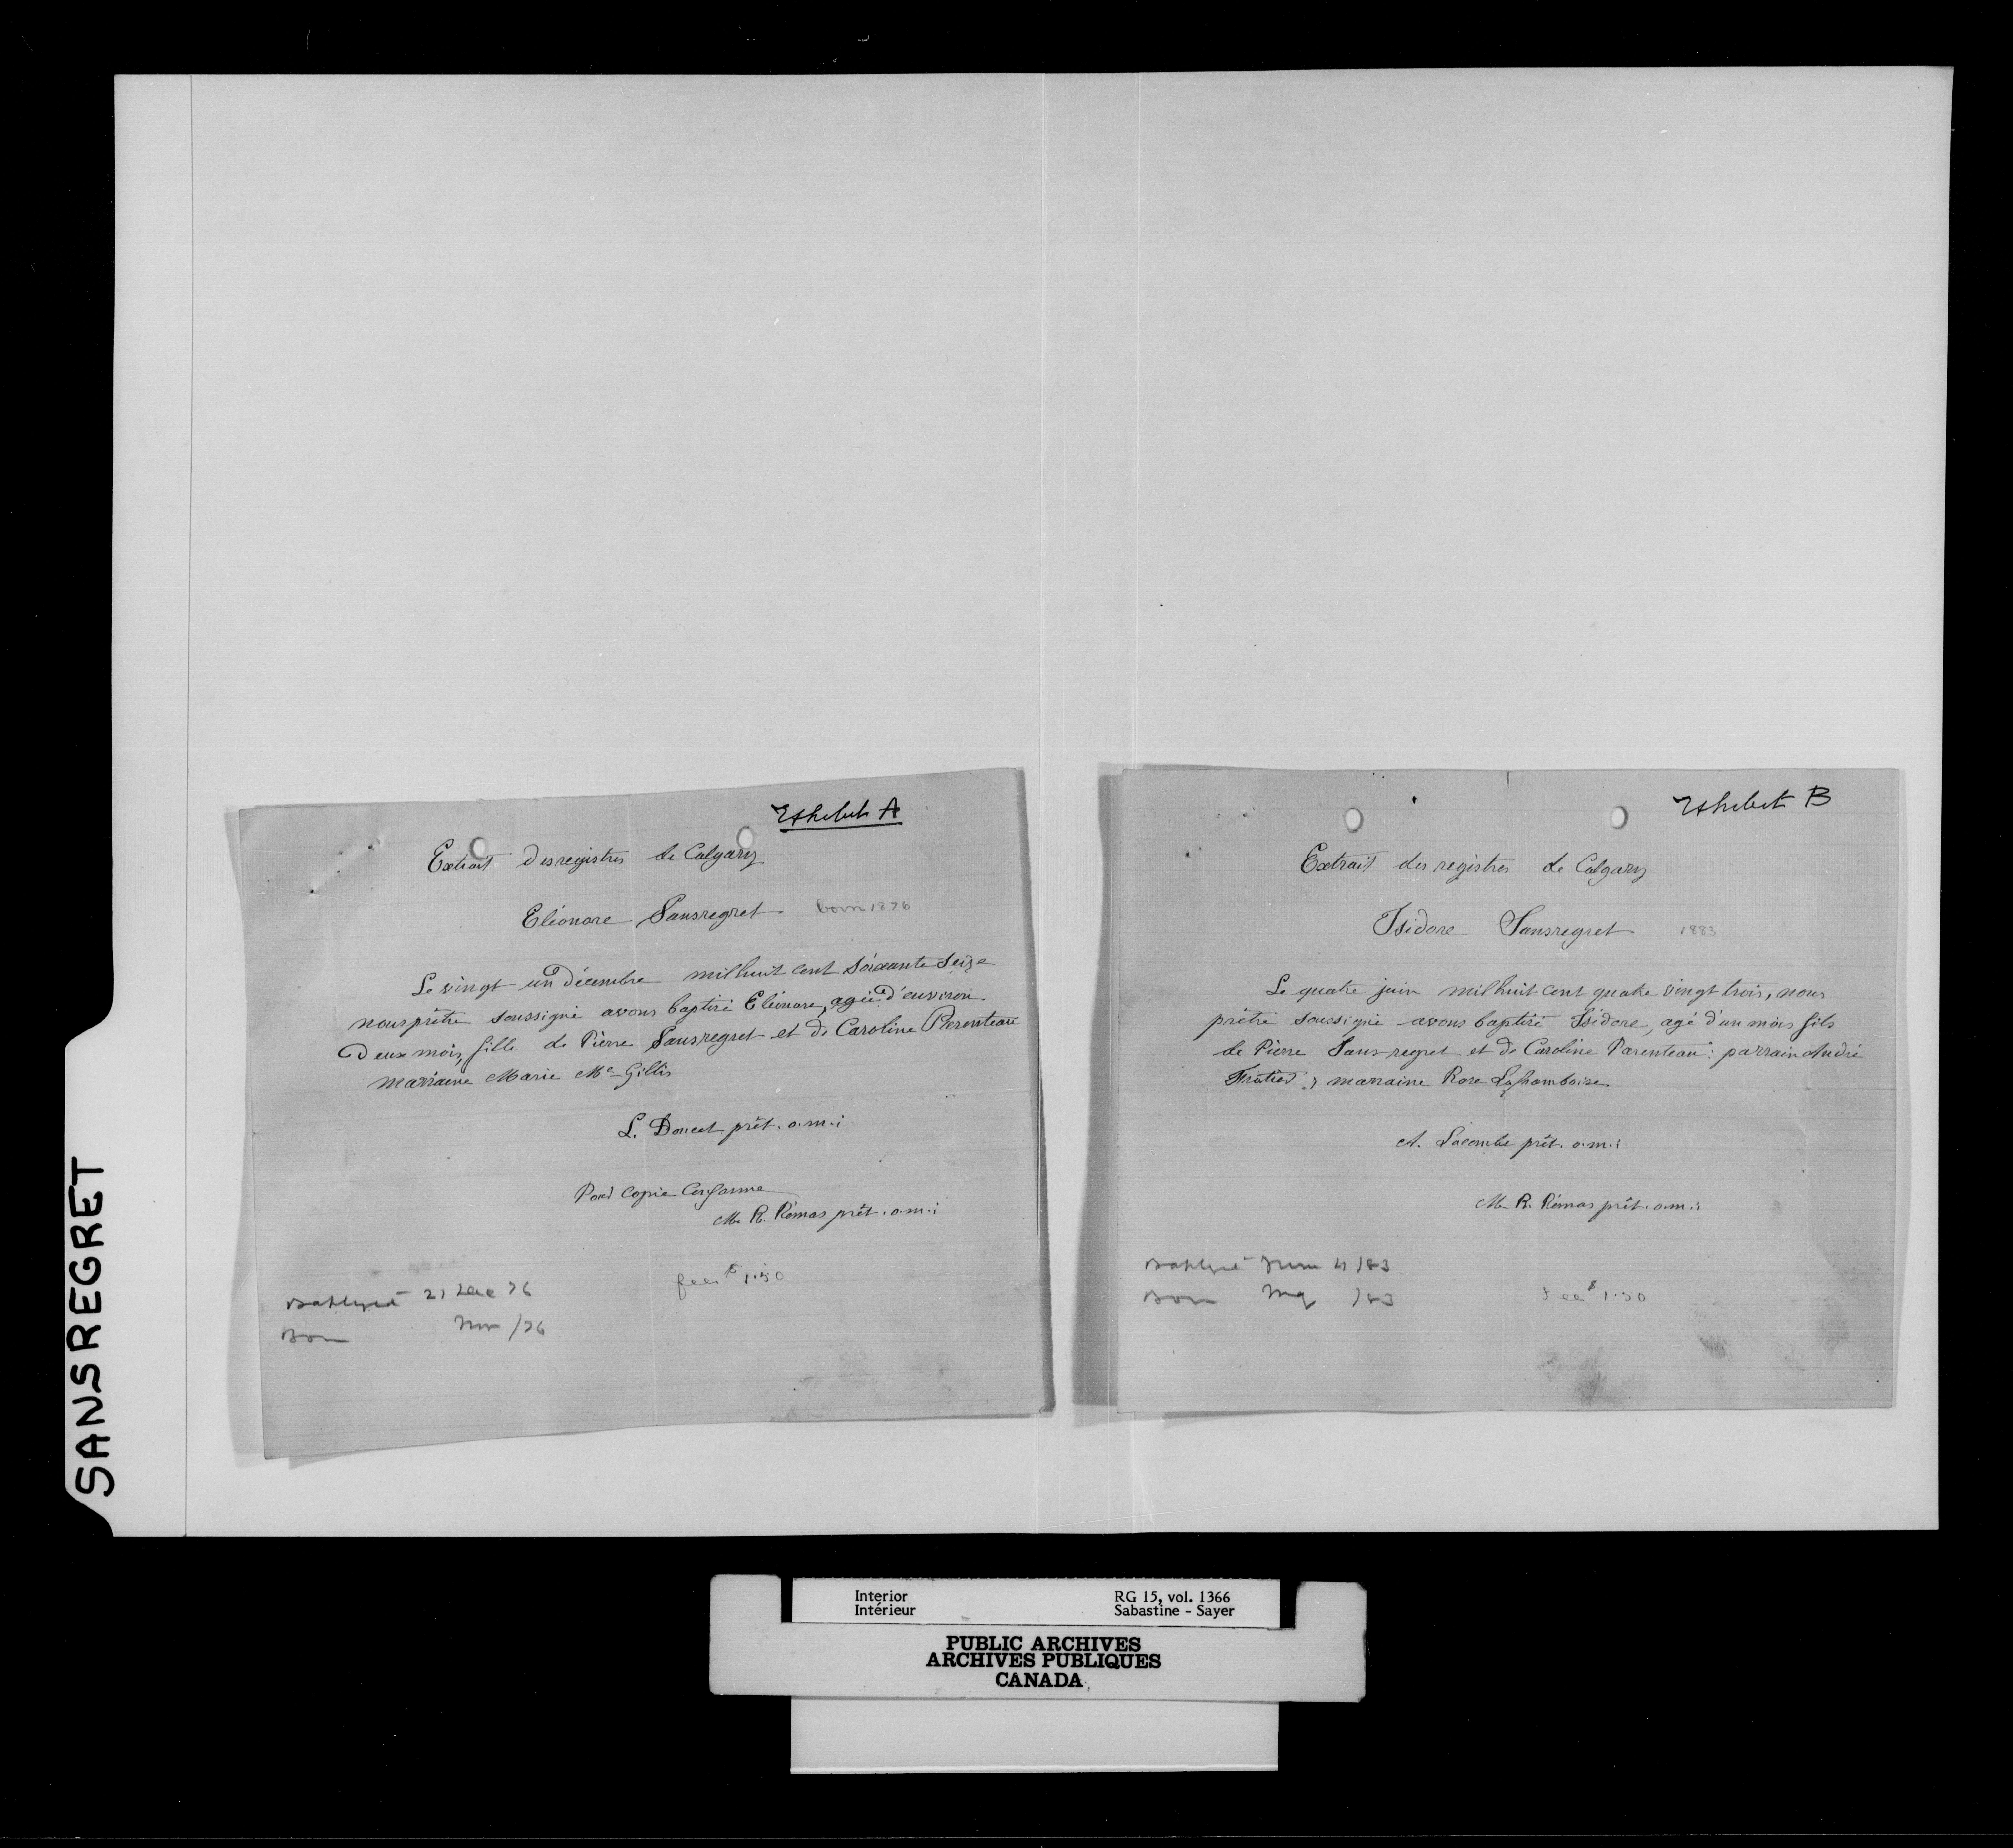 SANSREGRET
Exhibit A
Extrait des registres de Calgary
Eléonore Sansregret born 1876
Le vingt un Décembre mil huit cent soixante seize
nous prêtre soussigné avons baptisé Eléonore, agée d'environ
Deux mois, fille de Pierre Sansregret et de Caroline Parenteau
marraine Marie Mc Gillis
L. Doucet prêt. o.m.i
Pour Copie Conforme
M. R. Rémas prêt. o.m.i
fees $ 1.50
Baptized 21 Dec 76
Born Nov /76
Exhibit B
Extrait des registres de Calgary
Isidore Sansregret 1883
Le quatre juin mil huit cent quatre vingt trois, nous
prêtre soussigné avons baptisé Isidore, agé d'un mois fils
de Pierre Sansregret et de Caroline Parenteau: parrain André
marraine Rose Laframboise
A. Lacombe prêt. o.m.i
M. R. Rémas prêt. o.m.i
Baptized June 4 /83
Born May /83
Fee $ 1.50
Interior
Intérieur
RG 15, vol. 1366
Sabastine - Sayer
PUBLIC ARCHIVES
ARCHIVES PUBLIQUES
CANADA